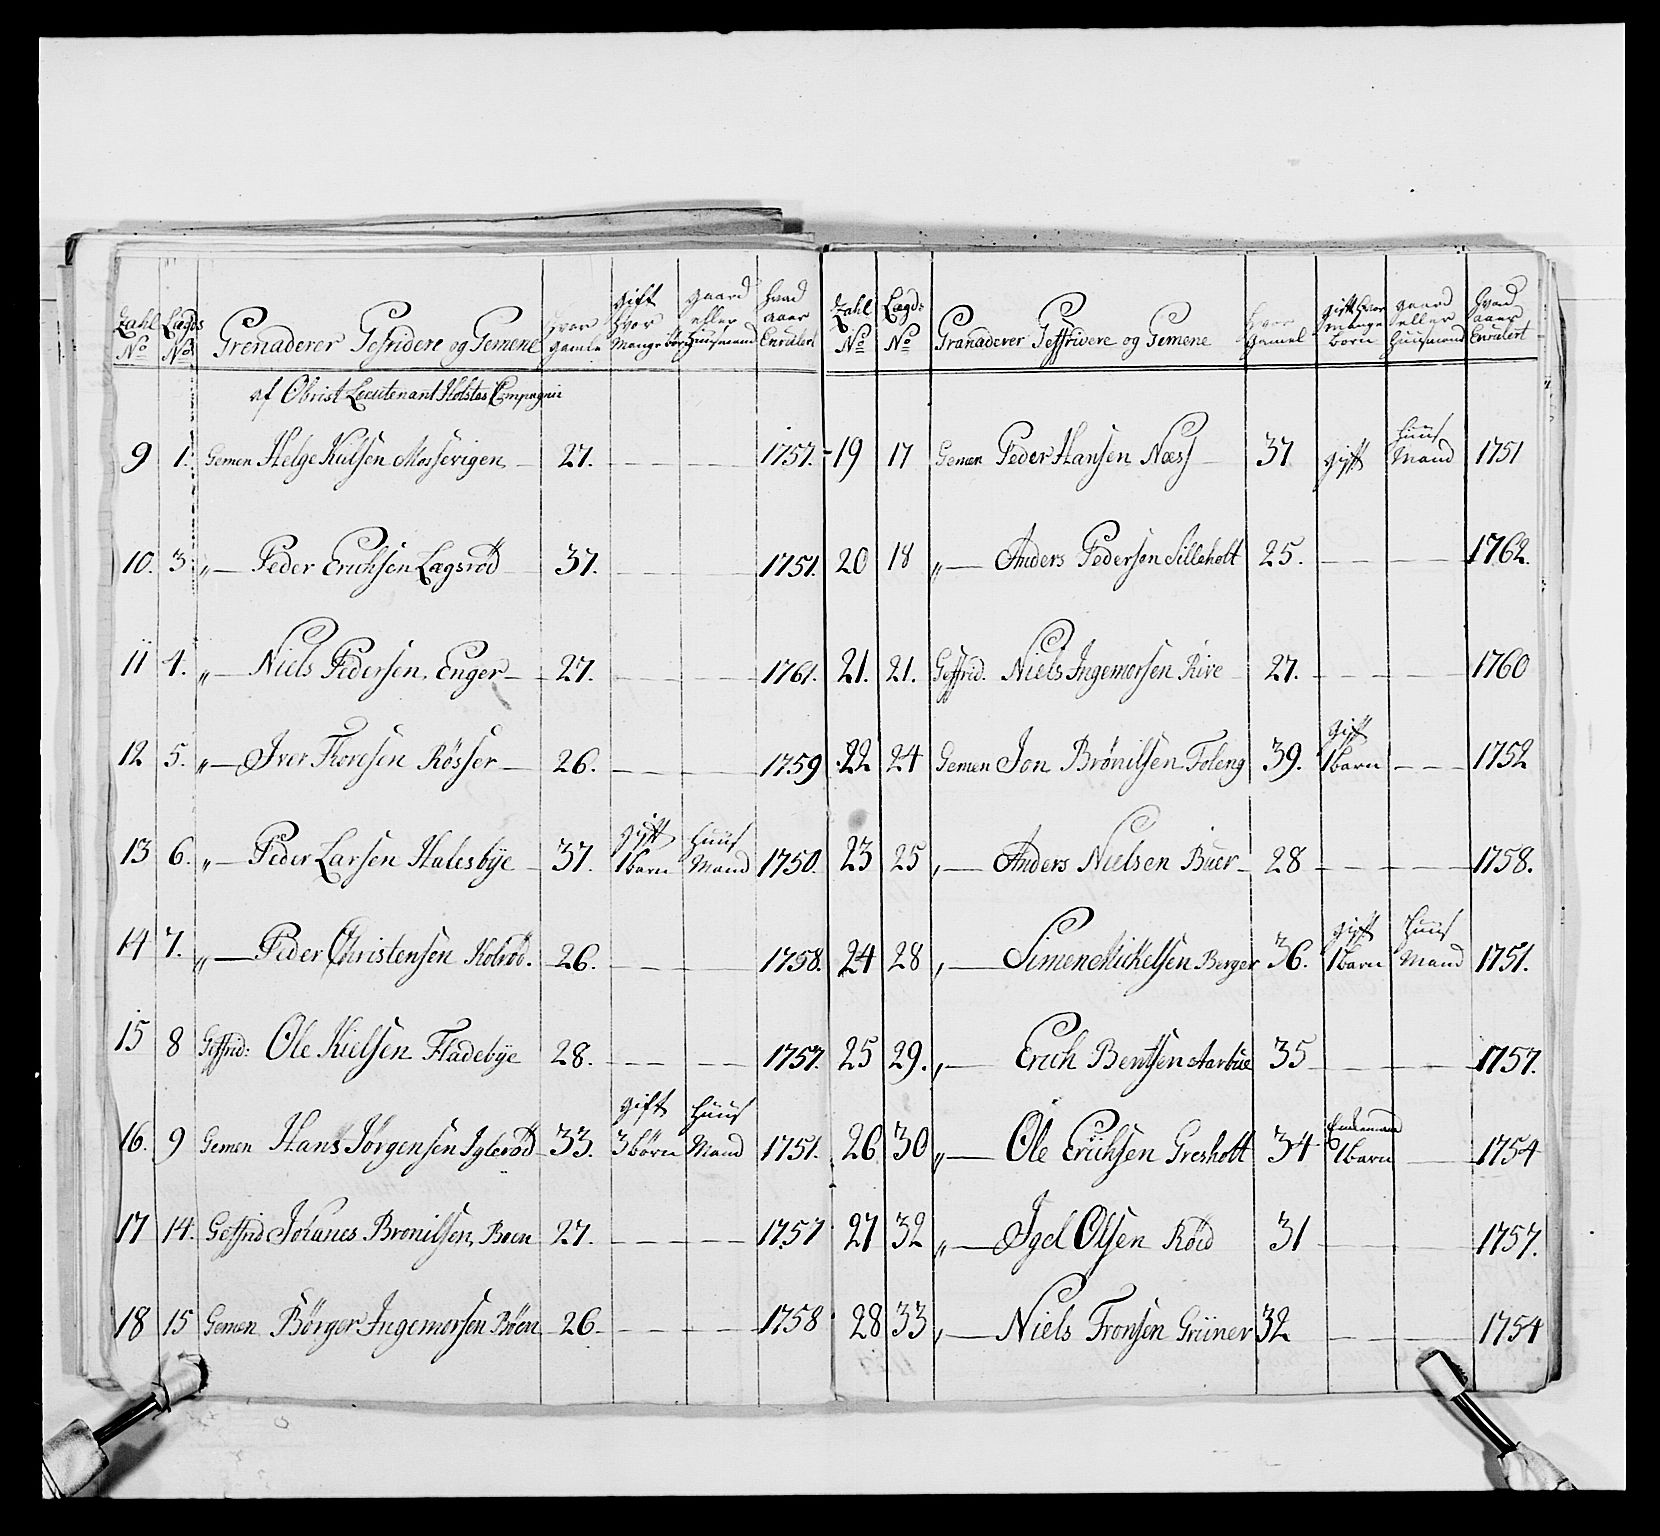 Zahl No | Lægds No | Grenaderer Gefridere og Gemene | hvor gamle | gift hvor Mange börn | gaard eller Huusmand | hvad aaer Enrulert
af Obrist Leeutenant Holstes Compagnie
9 | 1. | Gemen Helge Kulsen Mossevigen | 27. | — | — | 1757.
10. | 3 | „— Peder Erichsen Lagsröd | 37. | — | — | 1751.
11 | 4. | „— Niels Pedersen, Enger | 27. | — | — | 1761.
12 | 5. | „— Iver Thoresen Rösser | 26. | — | — | 1759
13 | 6. | „— Peder Larsen Halesbÿe | 37. | gift 1 barn | Huus Mand | 1750.
14 | 7. | „— Peder Christensen Kolröd. | 26. | — | — | 1758.
15 | 8 | Geffrid: Ole Kielsen Fladebÿe | 28. | — | — | 1757.
16. | 9 | Gemen Hans Jörgensen Igleröd | 33. | gift 3 börn | Huus Mand | 1751.
17 | 14. | Geffrid Johanes Bronilsen, Boen | 27. | — | — | 1757
18 | 15 | Gemen Börger Ingemorsen Böen | 26. | — | — | 1758
Zahl No | Lægds No | Granaderer Geffrivere og Gemene | hvor gamel | gift hvor mange born | gaard eller Huusmand | hvad aaer Enrulert
19 | 17 | Gemen Peder Hansen Næss | 37 | gift | Huus Mand | 1751
20 | 18 | „— Anders Pedersen Silleholt | 25. | — | — | 1762.
21. | 21. | Geffrid. Niels Ingemorsen Rive | 27. | — | — | 1760
22 | 24 | Gemen Jon Brönilsen Foleng | 39. | gift 1 barn | — | 1752
23 | 25 | „— Anders Nielsen Buer | 28 | — | — | 1758.
24 | 28 | „— Simen Mickelsen Berger | 36. | gift 1 barn | Huus Mand | 1751.
25 | 29. | „— Erich Bentsen Aarbue | 35 | — | — | 1757.
26 | 30 | „— Ole Erichsen Gresholt | 34 | Enkemand 1 barn | — | 1754
27 | 32 | „— Igel Olsen Röed | 31 | — | — | 1757.
28 | 33 | „— Niels Tronsen Grüner | 32 | — | — | 1754